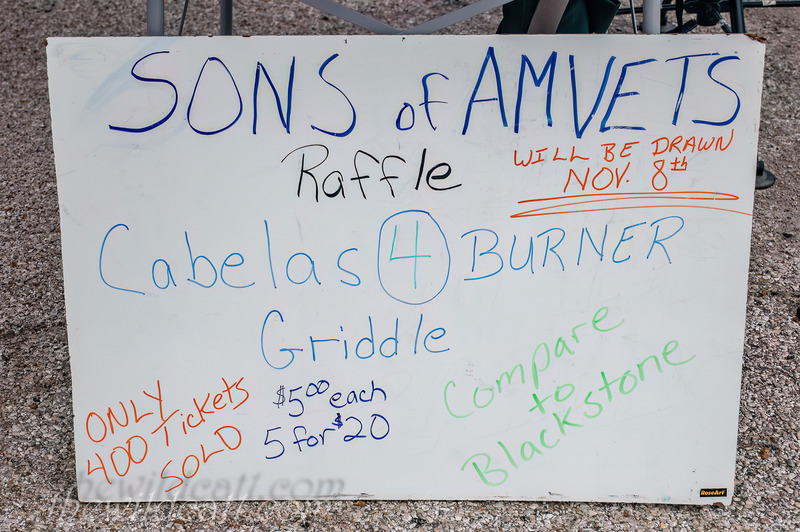 SONS of AMVETS
Raffle
WILL BE DRAWN
NOV. 8th
Cabelas 4 BURNER
Griddle
ONLY
400 Tickets
SOLD
$5.00 each
5 for $20
Compare
to
Blackstone
RoseArt